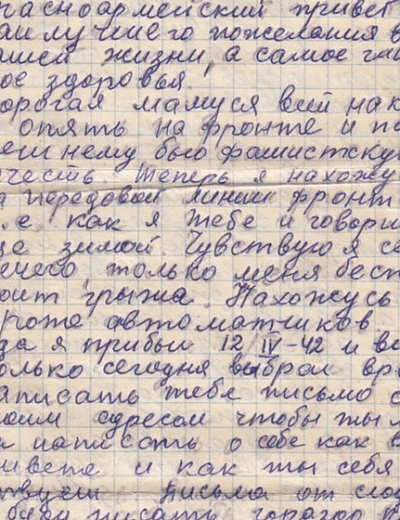 расноармейский привет
аилучшего пожелания в
ашей жизни, а самое гла
ое здоровья,
орогая мамуся вий нах
опять на фронте и по
еш нему бью фашистскую
ечесть. Теперь я нахожу
а передовой линии фронт
.е как я тебе и говори
ще зимой. Чувствую я се
ечего только меня бесп
оит грыжа. Нахожусь
роте автоматчиков
да я прибыл 12/IV-42 и в
олько сегодня выбрал вре
аписать тебе письмо с
воим адресом чтобы ты м
а написать о себе как в
ивете и как ты себя
ствуеш Письма от
буду писать гораздо